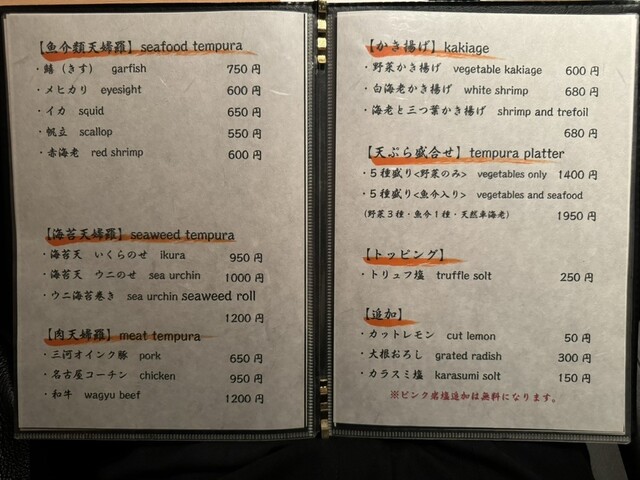 【魚介類天婦羅】 seafood tempura
・鱚（きす） garfish 750 円
・メヒカリ eyesight 600 円
・イカ squid 650 円
・帆立 scallop 550 円
・赤海老 red shrimp 600 円
【海苔天婦羅】 seaweed tempura
・海苔天 いくらのせ ikura 950 円
・海苔天 ウニのせ sea urchin 1000 円
・ウニ海苔巻き sea urchin seaweed roll
1200 円
【肉天婦羅】 meat tempura
・三河オインク豚 pork 650 円
・名古屋コーチン chicken 950 円
・和牛 wagyu beef 1200 円
【かき揚げ】 kakiage
・野菜かき揚げ vegetable kakiage 600 円
・白海老かき揚げ white shrimp 680 円
・海老と三つ葉かき揚げ shrimp and trefoil
680 円
【天ぷら盛合せ】 tempura platter
・５種盛り<野菜のみ> vegetables only 1400 円
・５種盛り<魚介入り> vegetables and seafood
(野菜３種・魚介１種・天然車海老) 1950 円
【トッピング】
・トリュフ塩 truffle solt 250 円
【追加】
・カットレモン cut lemon 50 円
・大根おろし grated radish 300 円
・カラスミ塩 karasumi solt 150 円
※ピンク岩塩追加は無料になります。